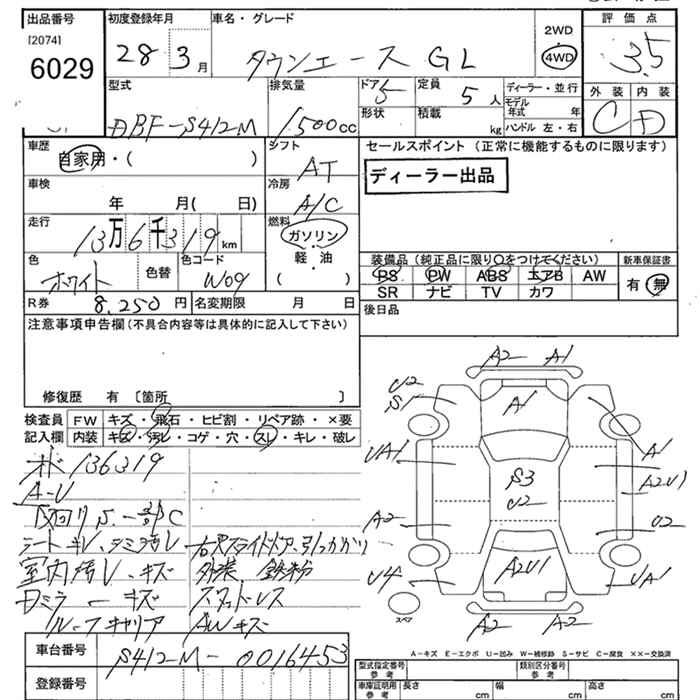 出品番号 初度登録年月 車名・グレード 2WD 評価点
[2074] 6029 28 3月 タウンエース GL 4WD 3.5
型式 排気量 ドア 5 定員 5人 ディーラー・並行 外装 内装
DBF-S412M 1500cc 形状 積載 kg モデル年式 年 C D
ハンドル 左・右
車歴 シフト セールスポイント (正常に機能するものに限ります)
自家用・( ) AT ディーラー出品
車検 冷房
年 月( 日) A/C
走行 燃料
13万6千319km ガソリン
軽・油
( )
色 色替 色コード 装備品(純正品に限り○をつけてください) 新車保証書
ホワイト W09 PS PW ABS エアB AW 有 無
SR ナビ TV カワ
R券 8,250円 名変期限 月 日 後日品
注意事項申告欄(不具合内容等は具体的に記入して下さい)
修復歴 有 〔箇所 〕
検査員 FW キズ・飛石・ヒビ割・リペア跡・×要
記入欄 内装 キズ・汚レ・コゲ・穴・スレ・キレ・破レ
136319
A-U
下回りS.一部C
シートキレ、シミ汚レ 右スライドドア引っかかり
室内汚レ、キズ 外装 鉄粉
Dミラーキズ スタッドレス
ルーフキャリア AWキズ
A2 A1
U2
S1 A1
UA1 A1
S3 A2U1
U2
A2 U2
U4 A2U1 UA1
スペア A2 A2
A-キズ E-エクボ U-凹み W-補修跡 S-サビ C-腐食 ××-交換済
車台番号 S412M-0016453
登録番号
型式指定番号 参考 類別区分番号 参考
車庫証明用 参考 長さ cm 幅 cm 高さ cm